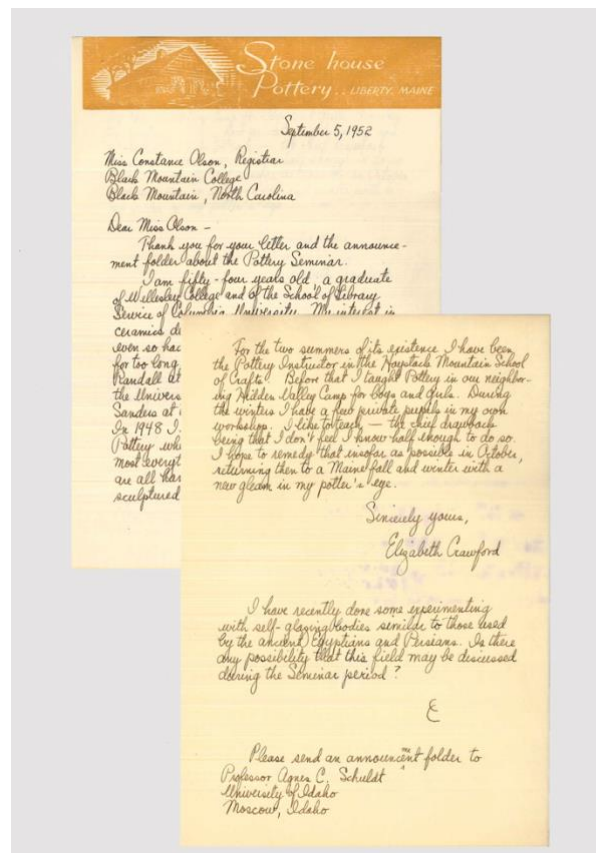 Stone house
Pottery.. LIBERTY, MAINE
September 5, 1952
Miss Constance Olson, Registrar
Black Mountain College
Black Mountain, North Carolina
Dear Miss Olson -
Thank you for your letter and the announce-
ment folder about the Pottery Seminar.
I am fifty-four years old, a graduate
of Wellesley College and of the School of Library
Service of Columbia University. My interest in
ceramics de
even so had
for too long
Randall at
the Univers
Sanders at
In 1948 I
Pottery whe
most everyt
are all han
sculptured
For the two summers of its existence I have been
the Pottery Instructor in the Haystack Mountain School
of Crafts. Before that I taught Pottery in our neighbor-
ing Hidden Valley Camp for boys and girls. During
the winters I have a few private pupils in my own
workshop. I like to teach — the chief drawback
being that I don't feel I know half enough to do so.
I hope to remedy that insofar as possible in October,
returning then to a Maine fall and winter with a
new gleam in my potter's eye.
Sincerely yours,
Elizabeth Crawford
I have recently done some experimenting
with self-glazing bodies similar to those used
by the ancient Egyptians and Persians. Is there
any possibility that this field may be discussed
during the Seminar period?
E
Please send an announcement folder to
Professor Agnes C. Schuldt
University of Idaho
Moscow, Idaho